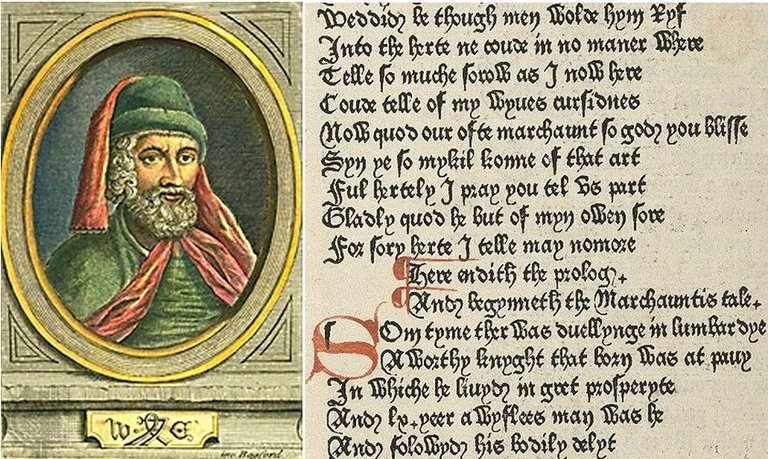 W C
inv. Bagford.
Weddid be though men wolde hym ryf
Into the herte ne coude in no maner where
Telle so muche sorow as I now here
Coude telle of my wyues cursidnes
Now quod our oste marchaunt so god you blisse
Syn ye so mykil konne of that art
Ful hertely I pray you tel vs part
Gladly quod he but of myn owen sore
For sory herte I telle may nomore
Here endith the prolog.
And begynneth the Marchauntis tale.
Som tyme ther was duellynge in lumbardye
A worthy knyght that born was at pauy
In whiche he liuyd in gret prosperyte
And lx. yeer a wyflees man was he
And folowyd his bodily delyt